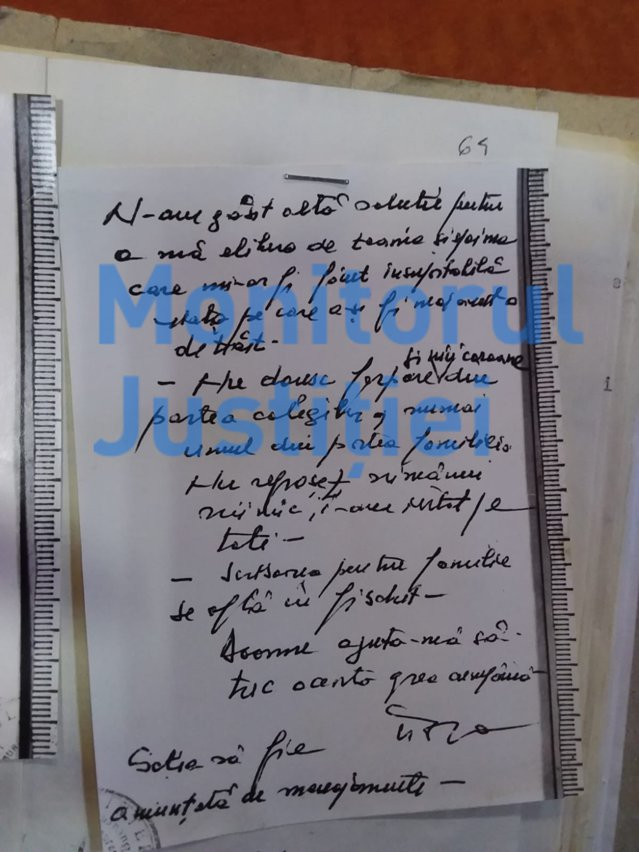 64
N-am găsit altă soluție pentru
a mă elibera de teama și spaima
care mi-ar fi făcut insuportabilă
viața pe care aș fi mai avut-o
de trăit -
și nici coroane
- Nu doresc ferpare din
partea colegilor, numai
unul din partea familiei
Nu reproșez nimănui
nimic, i-am iertat pe
toți -
- Scrisoarea pentru familie
se află în fișchet -
Doamne ajută-mă să
trec această grea cumpănă
Soția să fie
anunțată de menajamente -
Monitorul
Justiției